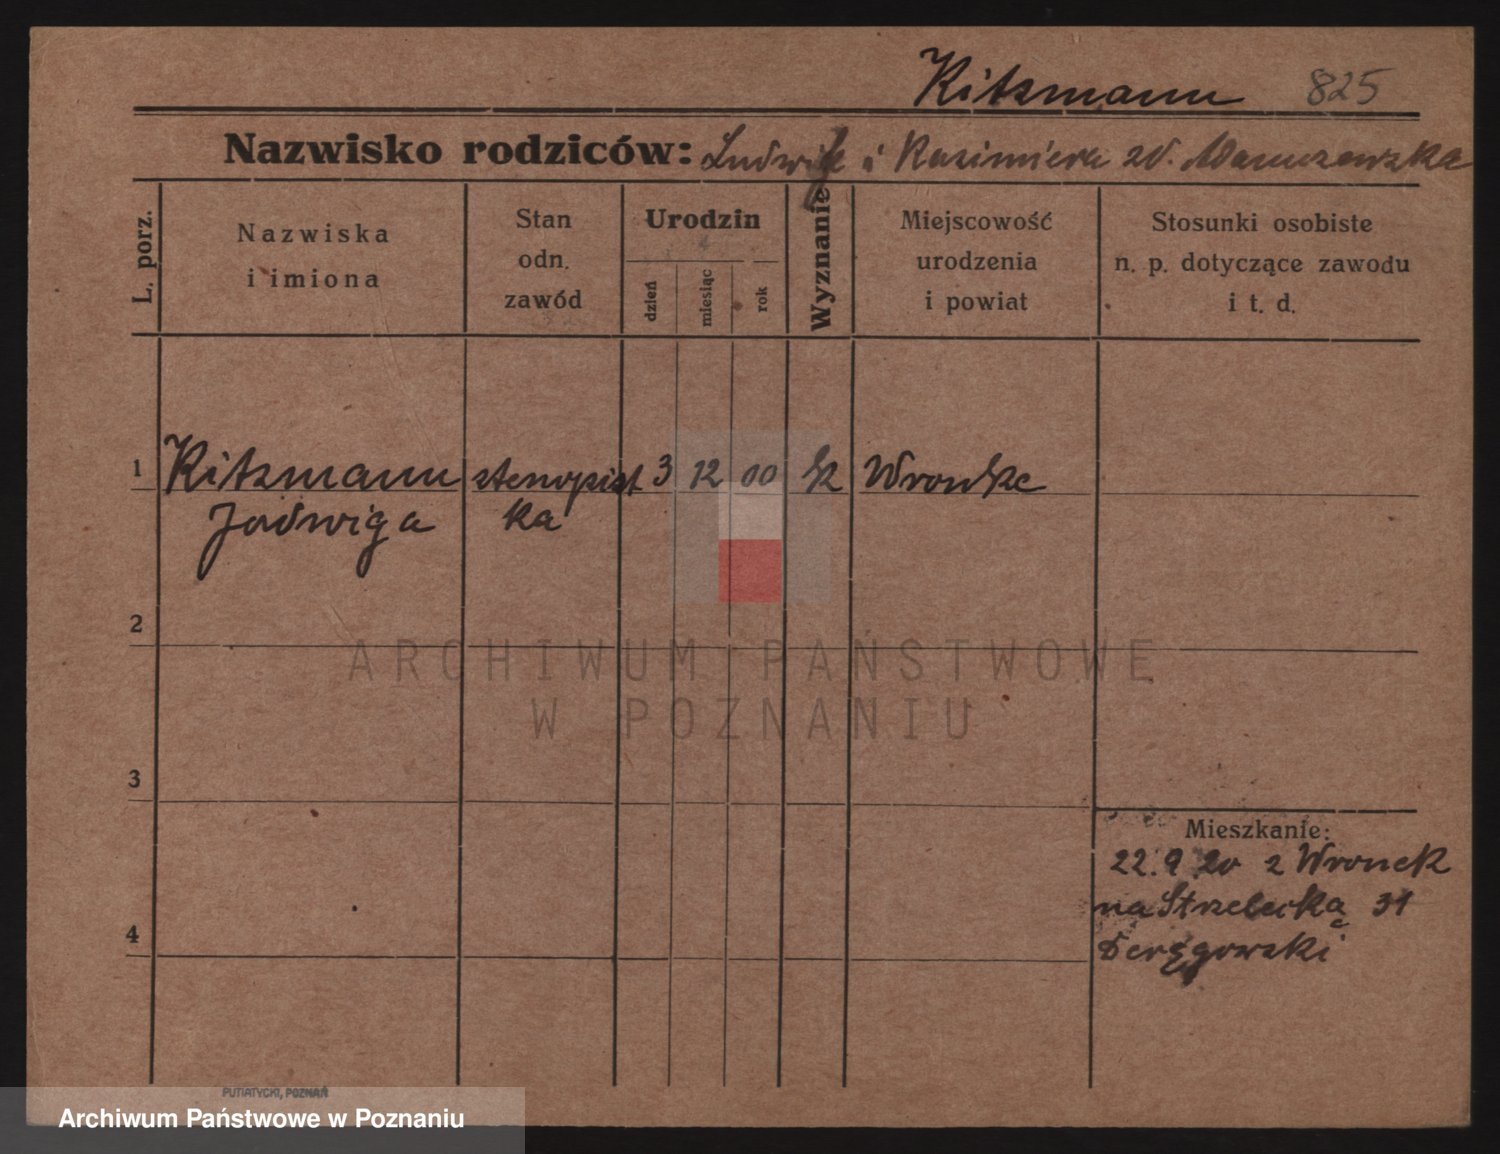 Kitzmann 825
Nazwisko rodziców: Ludwik i Kazimiera zd.
L. porz.
Nazwiska
i imiona
Stan
odn.
zawód
Urodzin
dzień
miesiąc
rok
Wyznanie
Miejscowość
urodzenia
i powiat
Stosunki osobiste
n. p. dotyczące zawodu
i t. d.
1 Kitzmann stenopist 3 12 00 k Wronke
Jadwiga ka
2
ARCHIWUM PAŃSTWOWE
W POZNANIU
3
Mieszkanie:
22.9 20 z Wronek
na Strzelecką 31
4
Deręgowski
PUTIATYCKI, POZNAŃ
Archiwum Państwowe w Poznaniu